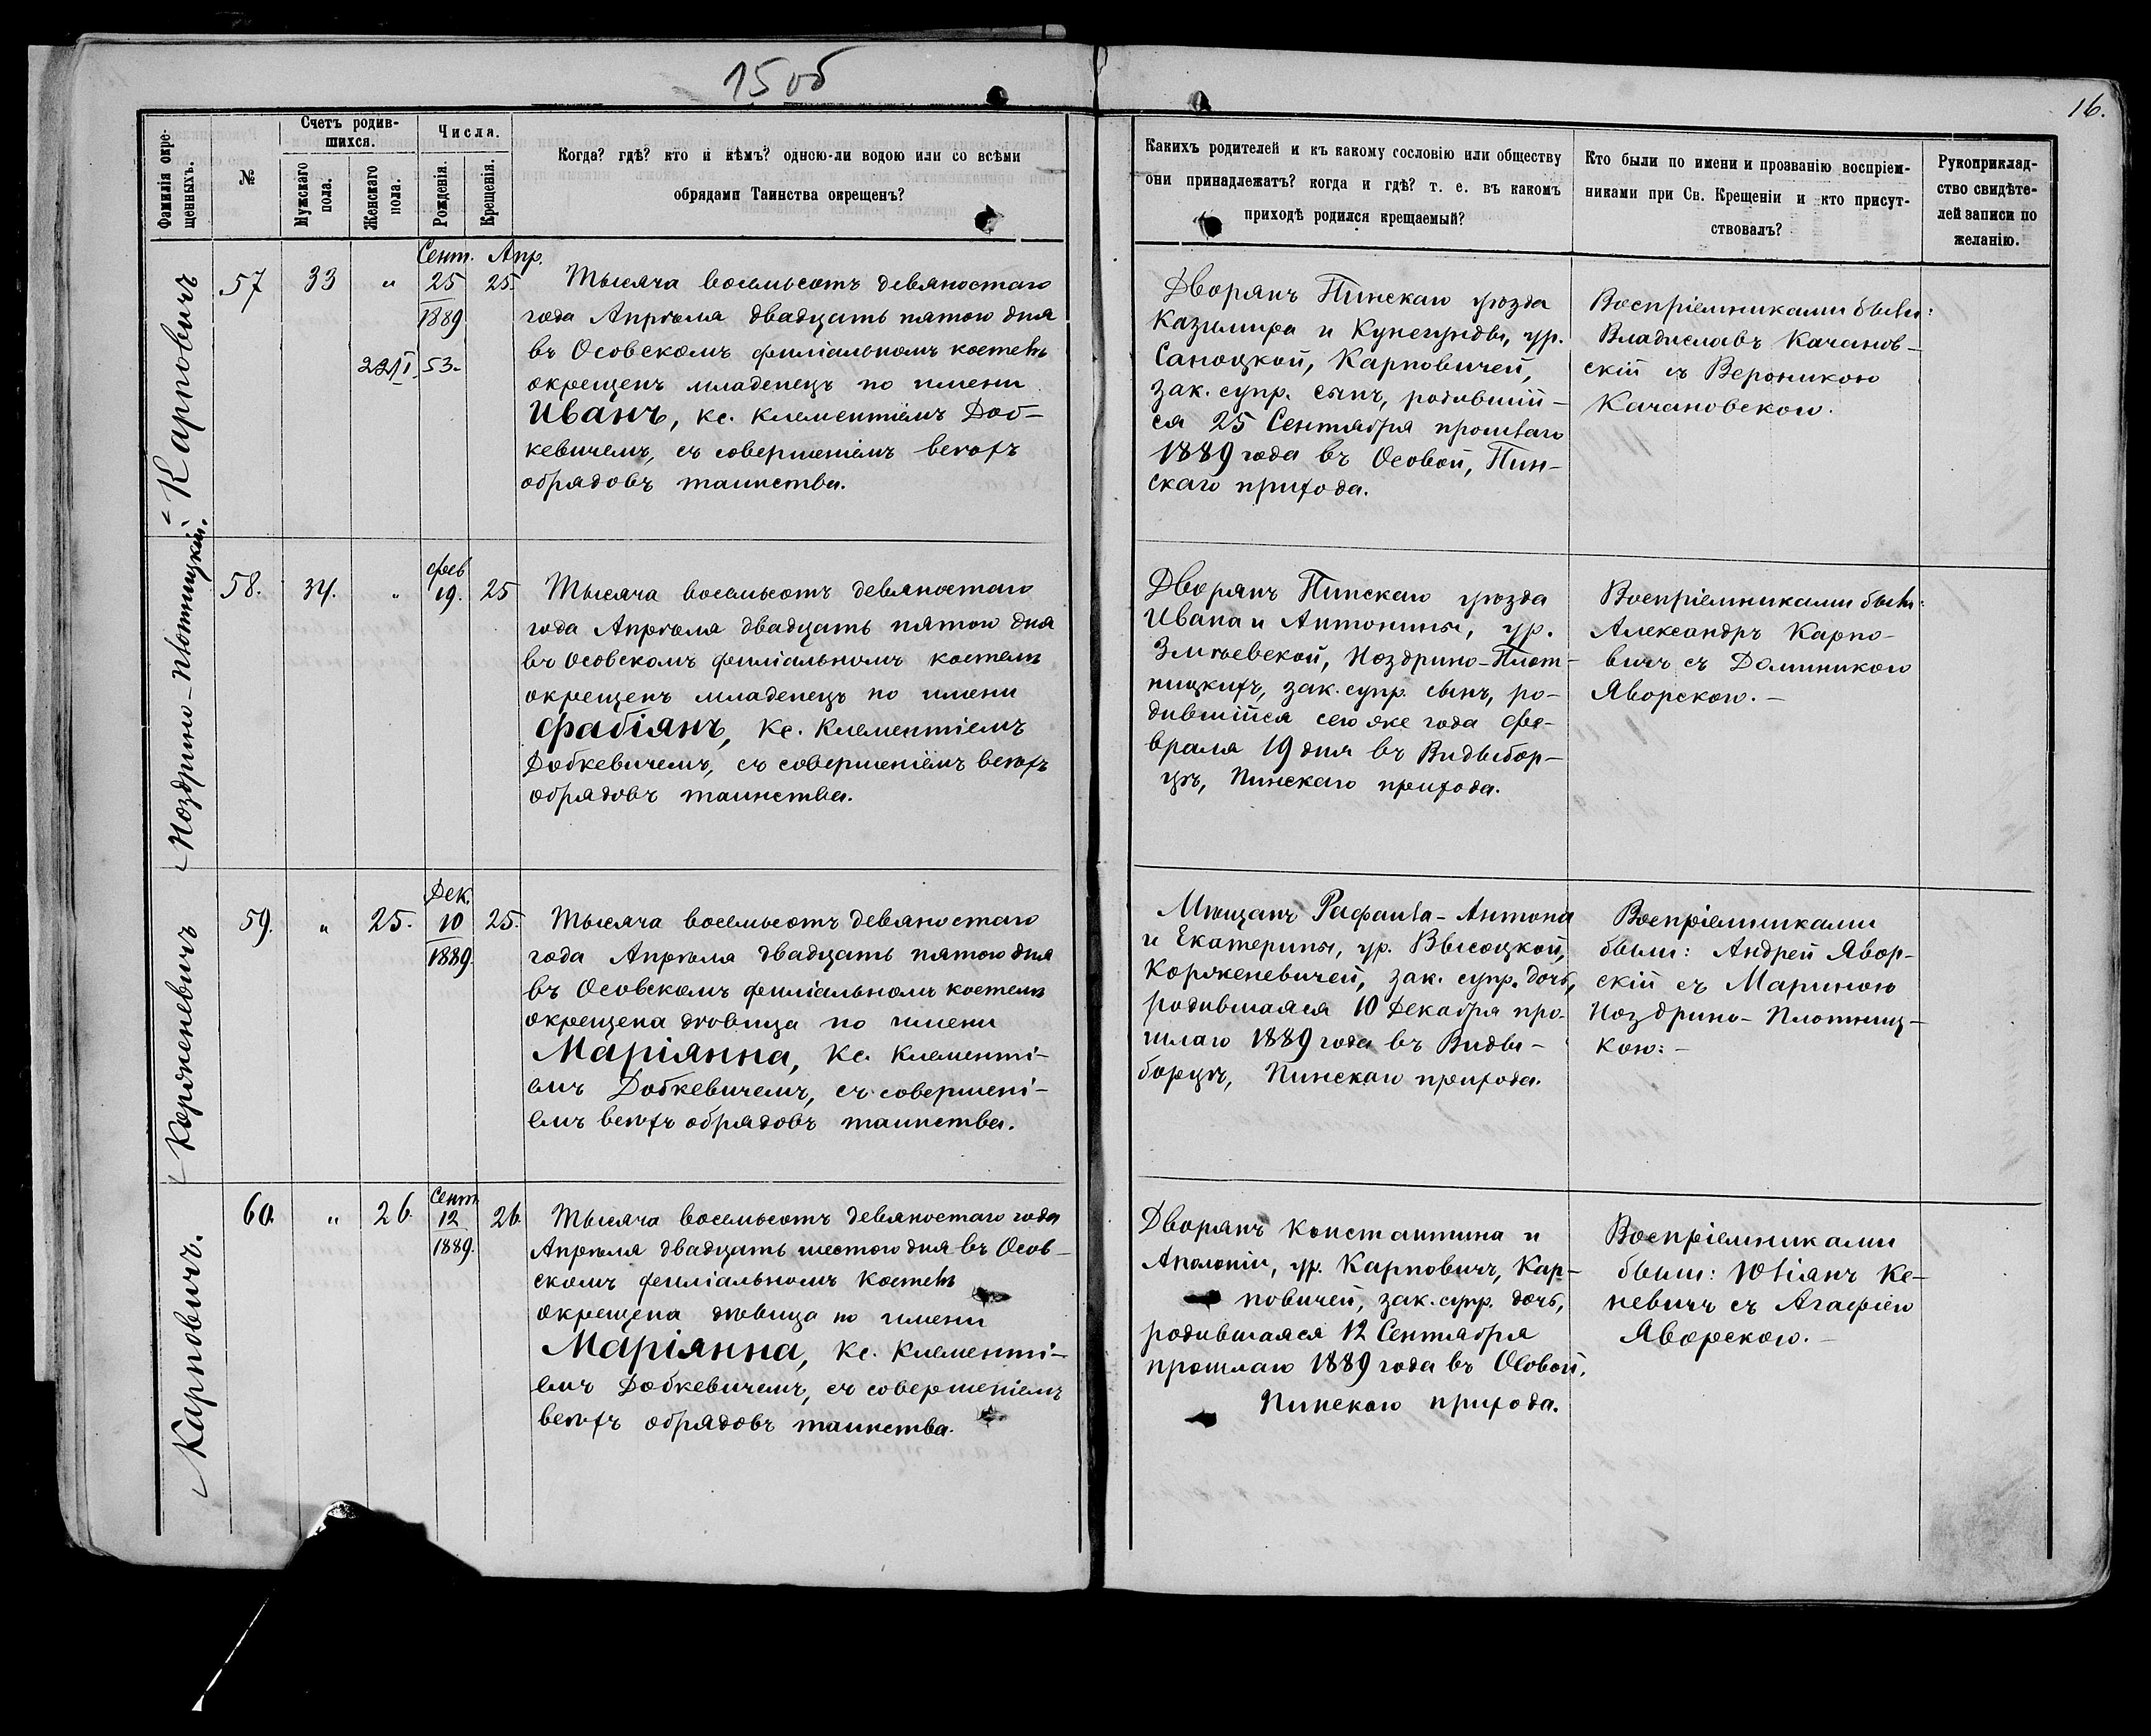 15 об
16.
Фамилія окре-
щенныхъ.
№
Счетъ родив-
шихся.
Мужскаго
пола.
Женскаго
пола.
Числа.
Рожденія.
Крещенія.
Когда? гдѣ? кто и кѣмъ? одною-ли водою или со всѣми
обрядами Таинства окрещенъ?
Какихъ родителей и къ какому сословію или обществу
они принадлежатъ? когда и гдѣ? т. е. въ какомъ
приходѣ родился крещаемый?
Кто были по имени и прозванію воспріем-
никами при Св. Крещеніи и кто присут-
ствовалъ?
Рукоприклад-
ство свидѣте-
лей записи по
желанію.
Карповичъ
57
33
"
Сент.
25
1889
Апр.
25.
53.
Тысяча восемьсотъ девяностаго
года Апрѣля двадцать пятого дня
въ Осовскомъ филіальномъ костелѣ
окрещенъ младенецъ по имени
Иванъ, кс. Клементіемъ Доб-
кевичемъ, съ совершеніемъ всѣхъ
обрядовъ таинства.
Дворянъ Пинскаго уѣзда
Казимира и Кунегунды, ур.
Саноцкой, Карповичей,
зак. супр. сынъ, родивший-
ся 25 Сентября прошлаго
1889 года въ Осовой, Пин-
скаго прихода.
Воспріемниками были:
Владиславъ Качанов-
скій съ Вероникою
Качановскою.
Ноздрино-Плотницкій.
58.
34.
"
фев
19.
25
Тысяча восемьсотъ девяностаго
года Апрѣля двадцать пятого дня
въ Осовскомъ филіальномъ костелѣ
окрещенъ младенецъ по имени
Фабіянъ, Кс. Клементіемъ
Добкевичемъ, съ совершеніемъ всѣхъ
обрядовъ таинства.
Дворянъ Пинскаго уѣзда
Ивана и Антонины, ур.
Змѣевской, Ноздрино-Плот-
ницкихъ, зак. супр. сынъ, ро-
дившійся сего же года фев-
враля 19 дня въ Видыбор-
цѣ, Пинскаго прихода.
Воспріемниками были:
Александръ Карпо-
вичъ съ Доминикою
Яворскою. -
Корженевичъ
59.
"
25.
Дек.
10
1889.
25.
Тысяча восемьсотъ девяностаго
года Апрѣля двадцать пятого дня
въ Осовскомъ филіальномъ костелѣ
окрещена дѣвица по имени
Маріянна, Кс. Клементі-
емъ Добкевичемъ, съ совершені-
емъ всѣхъ обрядовъ таинства.
Мѣщанъ Рафаила-Антона
и Екатерины, ур. Высоцкой,
Корженевичей, зак. супр. дочь,
родившаяся 10 Декабря про-
шлаго 1889 года въ Виды-
борцѣ, Пинскаго прихода.
Воспріемниками
были: Андрей Явор-
скій съ Мариною
Ноздрино-Плотниц-
кою: -
Карповичъ.
60.
"
26
Сент.
12
1889.
26
Тысяча восемьсотъ девяностаго года
Апрѣля двадцать шестого дня въ Осов-
скомъ филіальномъ Костелѣ
окрещена дѣвица по имени
Маріянна, Кс. Клементі-
емъ Добкевичемъ, съ совершеніемъ
всѣхъ обрядовъ таинства.
Дворянъ Константина и
Аполоніи, ур. Карповичъ, Кар-
повичей, зак. супр. дочь,
родившаяся 12 Сентября
прошлаго 1889 года въ Осовой,
Пинскаго прихода.
Воспріемниками
были: Юліянъ Ке-
невичъ съ Агафіею
Яворскою. -